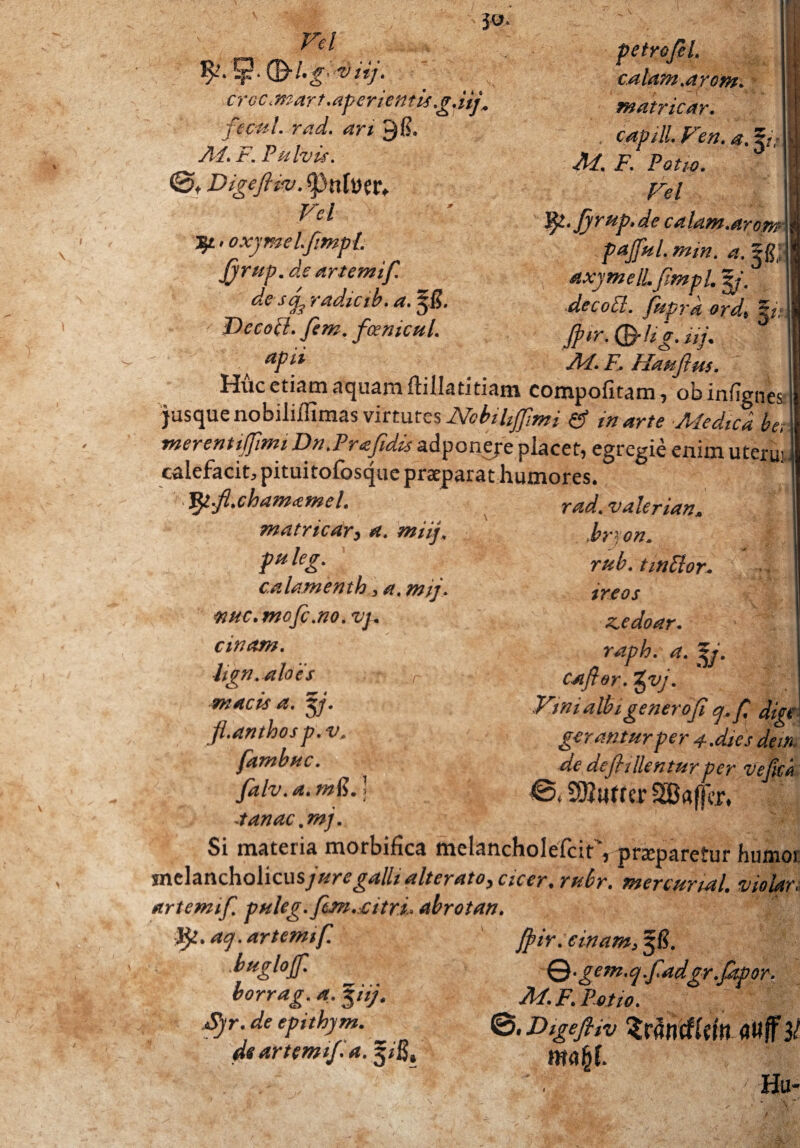 30.
Vel
℞. 🜿. ⦶ l. g. viij.
croc. mart. aperientis. g. iij.
fecul. rad. ari ℈ß.
M. F. Pulvis.
S. Digeſtiv. Pnlver.
Vel
℞. oxymel. ſimpl.
ſyrup. de artemiſ.
de s q; radicib. a. ℥ß.
Decoct. ſem. fœnicul.
apii
petroſel.
calam. arom.
matricar.
capill. Ven. a. ℥
M. F. Potio.
Vel
℞. ſyrup. de calam. arom
paſſul. min. a. ℥ß.
axymell. ſimpl. ℥j.
decoct. ſupra ord. ℥
ſpir. lig. iij.
M. F. Hauſtus.
Huc etiam aquam ſtillatitiam compoſitam, ob inſignes
jusque nobiliſſimas virtutes Nobiliſſimi & in arte Medica be
merentiſſimi Dn. Præſidis adponere placet, egregiè enim uterum
calefacit, pituitoſosque præparat humores.
℞. fl. chamæmel.
matricar, a. miij.
puleg.
calamenth, a. mij.
nuc. moſc. no. vj.
cinam.
lign. aloës
macis a. ℥j.
fl. anthos p. v.
ſambuc.
ſalv. a. mß.
tanac. mj.
rad. valerian.
bryon.
rub. tinctor.
ireos
zedoar.
raph. a. ℥j.
caſtor. ʒvj.
Vini albi generoſi q. ſ. dige
gerantur per 4. dies dein
de deſtillentur per veſica
S. Mutter Waſſer.
Si materia morbifica melancholeſcit, præparetur humor
melancholicus jure galli alterato, cicer. rubr. mercurial. violar.
artemiſ. puleg. ſem. citri. abrotan.
℞. aq. artemiſ.
bugloſſ.
borrag. a. ℥iij.
Syr. de epithym.
de artemiſ. a. ℥iß.
ſpir. cinam, ℥ß.
🜔. gem. q. ſ. ad gr. ſapor.
M. F. Potio.
S. Digeſtiv Träncklein auff 3
mahl.
Hu-